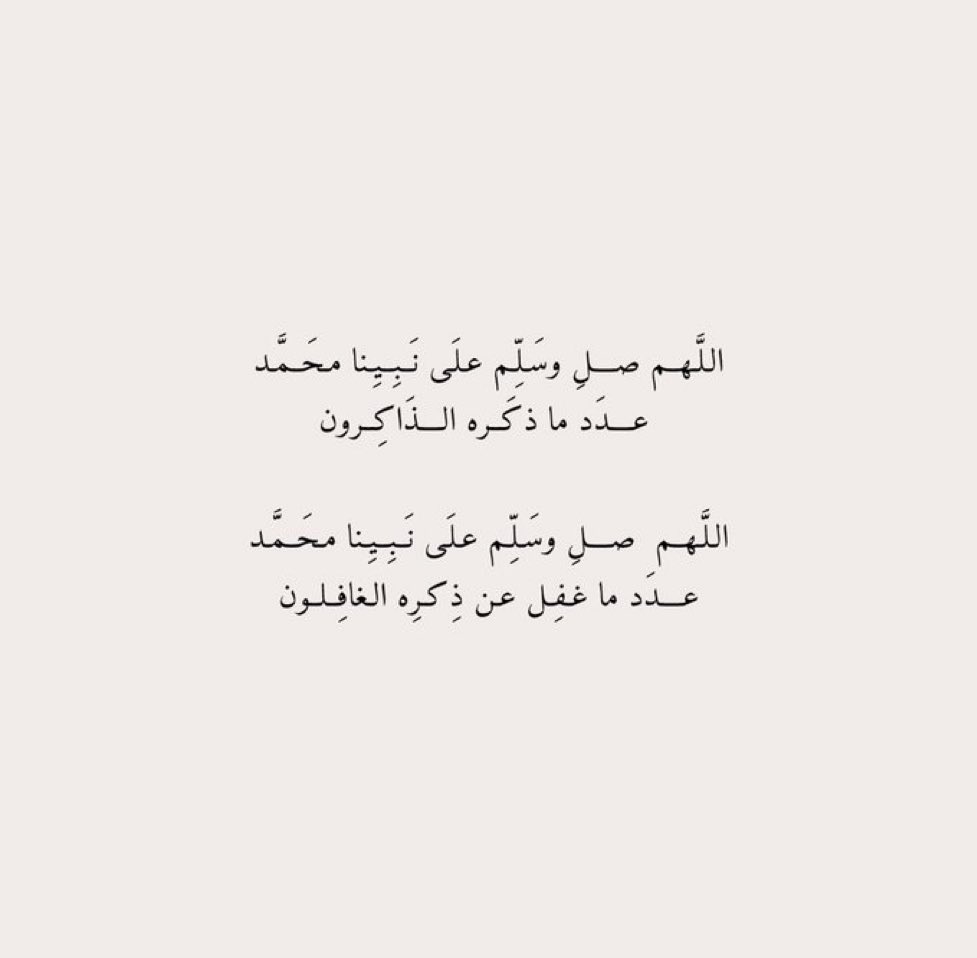 اللَّهـم صــلِ وسَلِّم علَى نَـبِـيِنا محَـمَّد
عــدَد ما ذكَـره الــذَاكِـرون
اللَّهـم صــلِ وسَلِّم علَى نَـبِـيِنا محَـمَّد
عــدَد ما غفِـل عن ذِكرِه الغافِـلـون